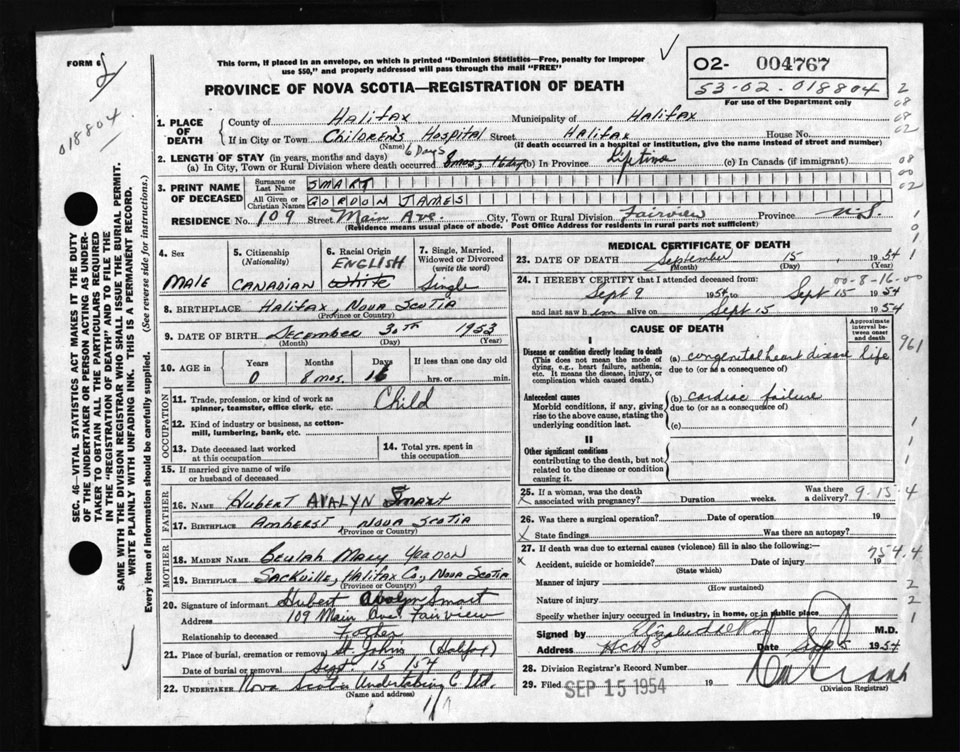 FORM 6
This form, if placed in an envelope, on which is printed "Dominion Statistics—Free, penalty for improper
use $50," and properly addressed will pass through the mail "FREE"
PROVINCE OF NOVA SCOTIA—REGISTRATION OF DEATH
O2- 004767
53-02-018804
For use of the Department only
018804
1. PLACE OF DEATH
County of Halifax Municipality of Halifax
If in City or Town Children's Hospital Street Halifax House No.
(Name) (If death occurred in a hospital or institution, give the name instead of street and number)
2. LENGTH OF STAY (in years, months and days)
6 Days
(a) In City, Town or Rural Division where death occurred 8 mos, 16 days (b) In Province Lifetime (c) In Canada (if immigrant)
3. PRINT NAME OF DECEASED
Surname or Last Name SMART
All Given or Christian Names GORDON JAMES
RESIDENCE No. 109 Street Main Ave. City, Town or Rural Division Fairview Province N.S.
(Residence means usual place of abode. Post Office Address for residents in rural parts not sufficient)
4. Sex
Male
5. Citizenship (Nationality)
CANADIAN
6. Racial Origin
ENGLISH
White
7. Single, Married, Widowed or Divorced (write the word)
Single
8. BIRTHPLACE Halifax, Nova Scotia
(Province or Country)
9. DATE OF BIRTH December 30th 1953
(Month) (Day) (Year)
10. AGE in
Years Months Days If less than one day old
0 8 mos. 16 hrs. or min.
OCCUPATION
11. Trade, profession, or kind of work as spinner, teamster, office clerk, etc. Child
12. Kind of industry or business, as cotton-mill, lumbering, bank, etc.
13. Date deceased last worked at this occupation
14. Total yrs. spent in this occupation
15. If married give name of wife or husband of deceased
FATHER
16. NAME Hubert AVALYN Smart
17. BIRTHPLACE Amherst, Nova Scotia
(Province or Country)
MOTHER
18. MAIDEN NAME Beulah Mary Yeadon
19. BIRTHPLACE Sackville, Halifax Co., Nova Scotia
(Province or Country)
20. Signature of informant Hubert Avalyn Smart
Address 109 Main Ave Fairview
Relationship to deceased Father
21. Place of burial, cremation or removal St. Johns (Halifax)
Date of burial or removal Sept. 15 '54
22. UNDERTAKER Nova Scotia Undertaking C. Ltd.
(Name and address)
MEDICAL CERTIFICATE OF DEATH
23. DATE OF DEATH September 15, 1954
(Month) (Day) (Year)
24. I HEREBY CERTIFY that I attended deceased from:
00-8-16-00
Sept 9 1954 to Sept 15 1954
and last saw him alive on Sept. 15 1954
CAUSE OF DEATH
Approximate interval between onset and death
I
Disease or condition directly leading to death
(This does not mean the mode of dying, e.g., heart failure, asthenia, etc. It means the disease, injury, or complication which caused death.)
(a) congenital heart disease life
due to (or as a consequence of)
Antecedent causes
Morbid conditions, if any, giving rise to the above cause, stating the underlying condition last.
(b) cardiac failure
due to (or as a consequence of)
(c)
II
Other significant conditions
contributing to the death, but not related to the disease or condition causing it.
25. If a woman, was the death associated with pregnancy? Duration weeks. Was there a delivery?
9-15-4
26. Was there a surgical operation? Date of operation 19
State findings Was there an autopsy?
27. If death was due to external causes (violence) fill in also the following:—
754.4
Accident, suicide or homicide? Date of injury 19
(State which)
Manner of injury
(How sustained)
Nature of injury
Specify whether injury occurred in industry, in home, or in public place
Signed by M.D.
Address HCH Date Sept 15 1954
28. Division Registrar's Record Number
29. Filed SEP 15 1954 19
(Division Registrar)
SEC. 46—VITAL STATISTICS ACT MAKES IT THE DUTY
OF THE UNDERTAKER OR PERSON ACTING AS UNDER-
TAKER TO OBTAIN ALL THE PARTICULARS REQUIRED
IN THE "REGISTRATION OF DEATH" AND TO FILE THE
SAME WITH THE DIVISION REGISTRAR WHO SHALL ISSUE THE BURIAL PERMIT.
WRITE PLAINLY WITH UNFADING INK. THIS IS A PERMANENT RECORD.
Every item of information should be carefully supplied. (See reverse side for instructions.)